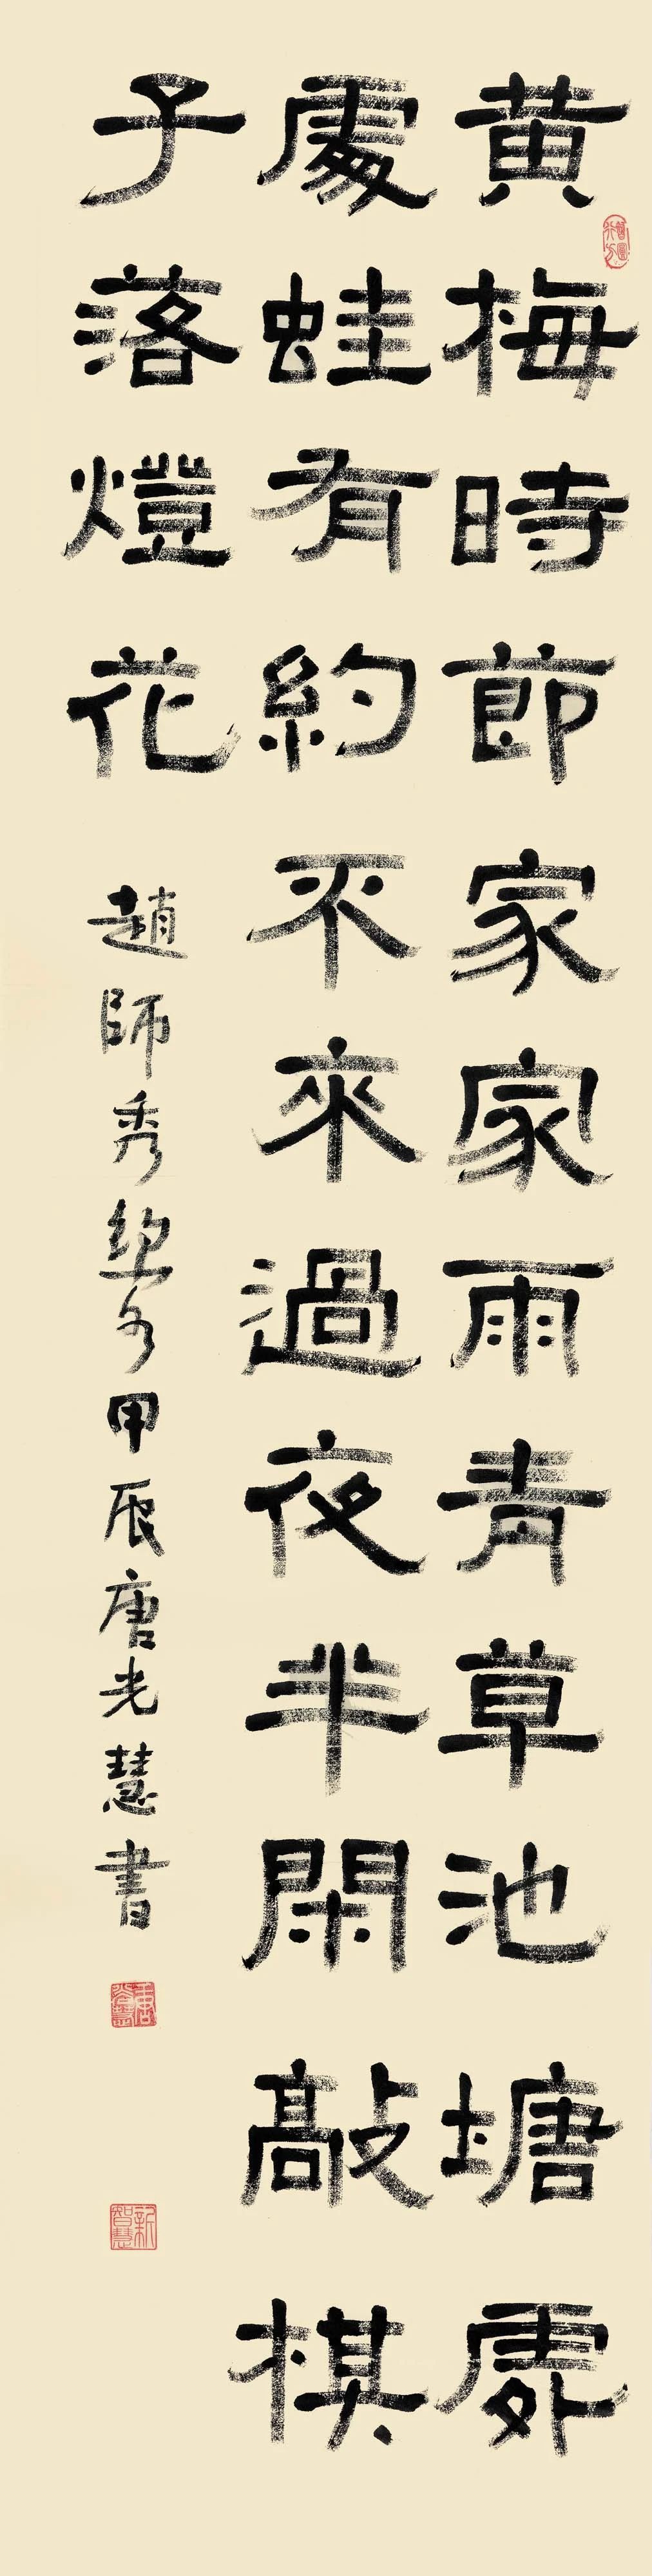 黄梅時節家家雨青草池塘處
處蛙有約不來過夜半閑敲棋
子落燈花
趙師秀絕句甲辰唐光慧書
唐光慧
新智慧